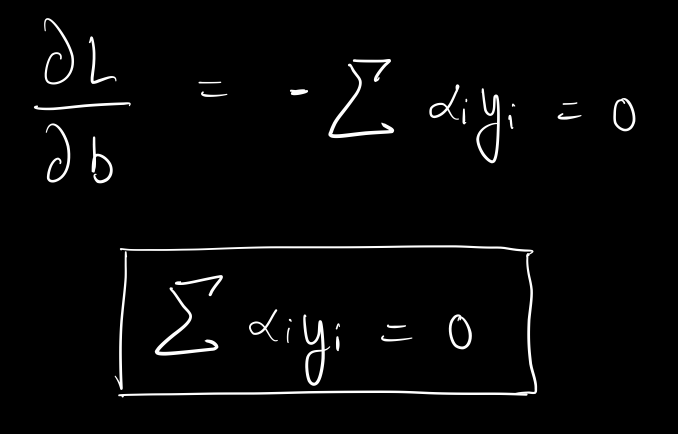 ∂L/∂b = - ∑ αᵢyᵢ = 0
∑ αᵢyᵢ = 0